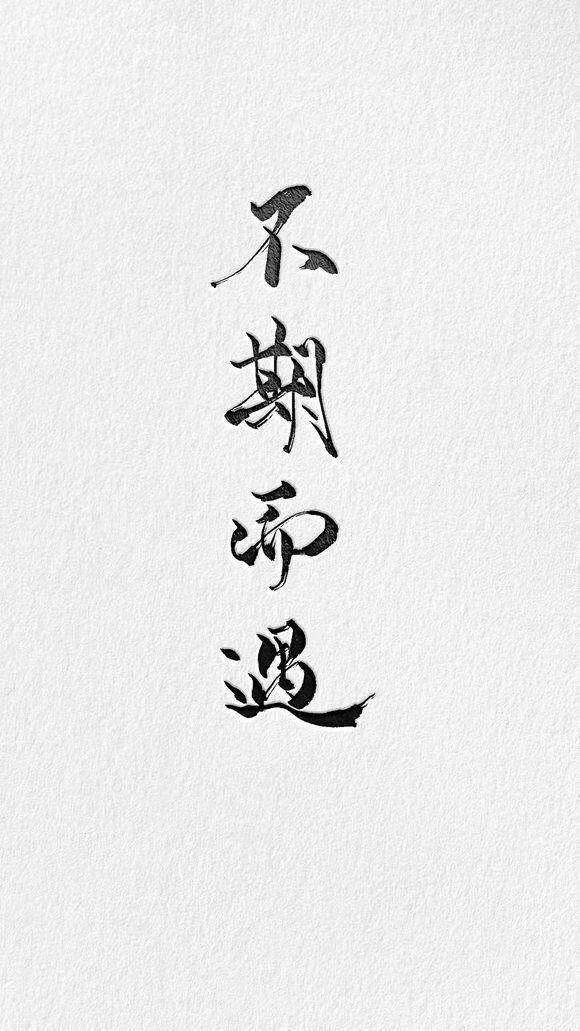 不期而遇